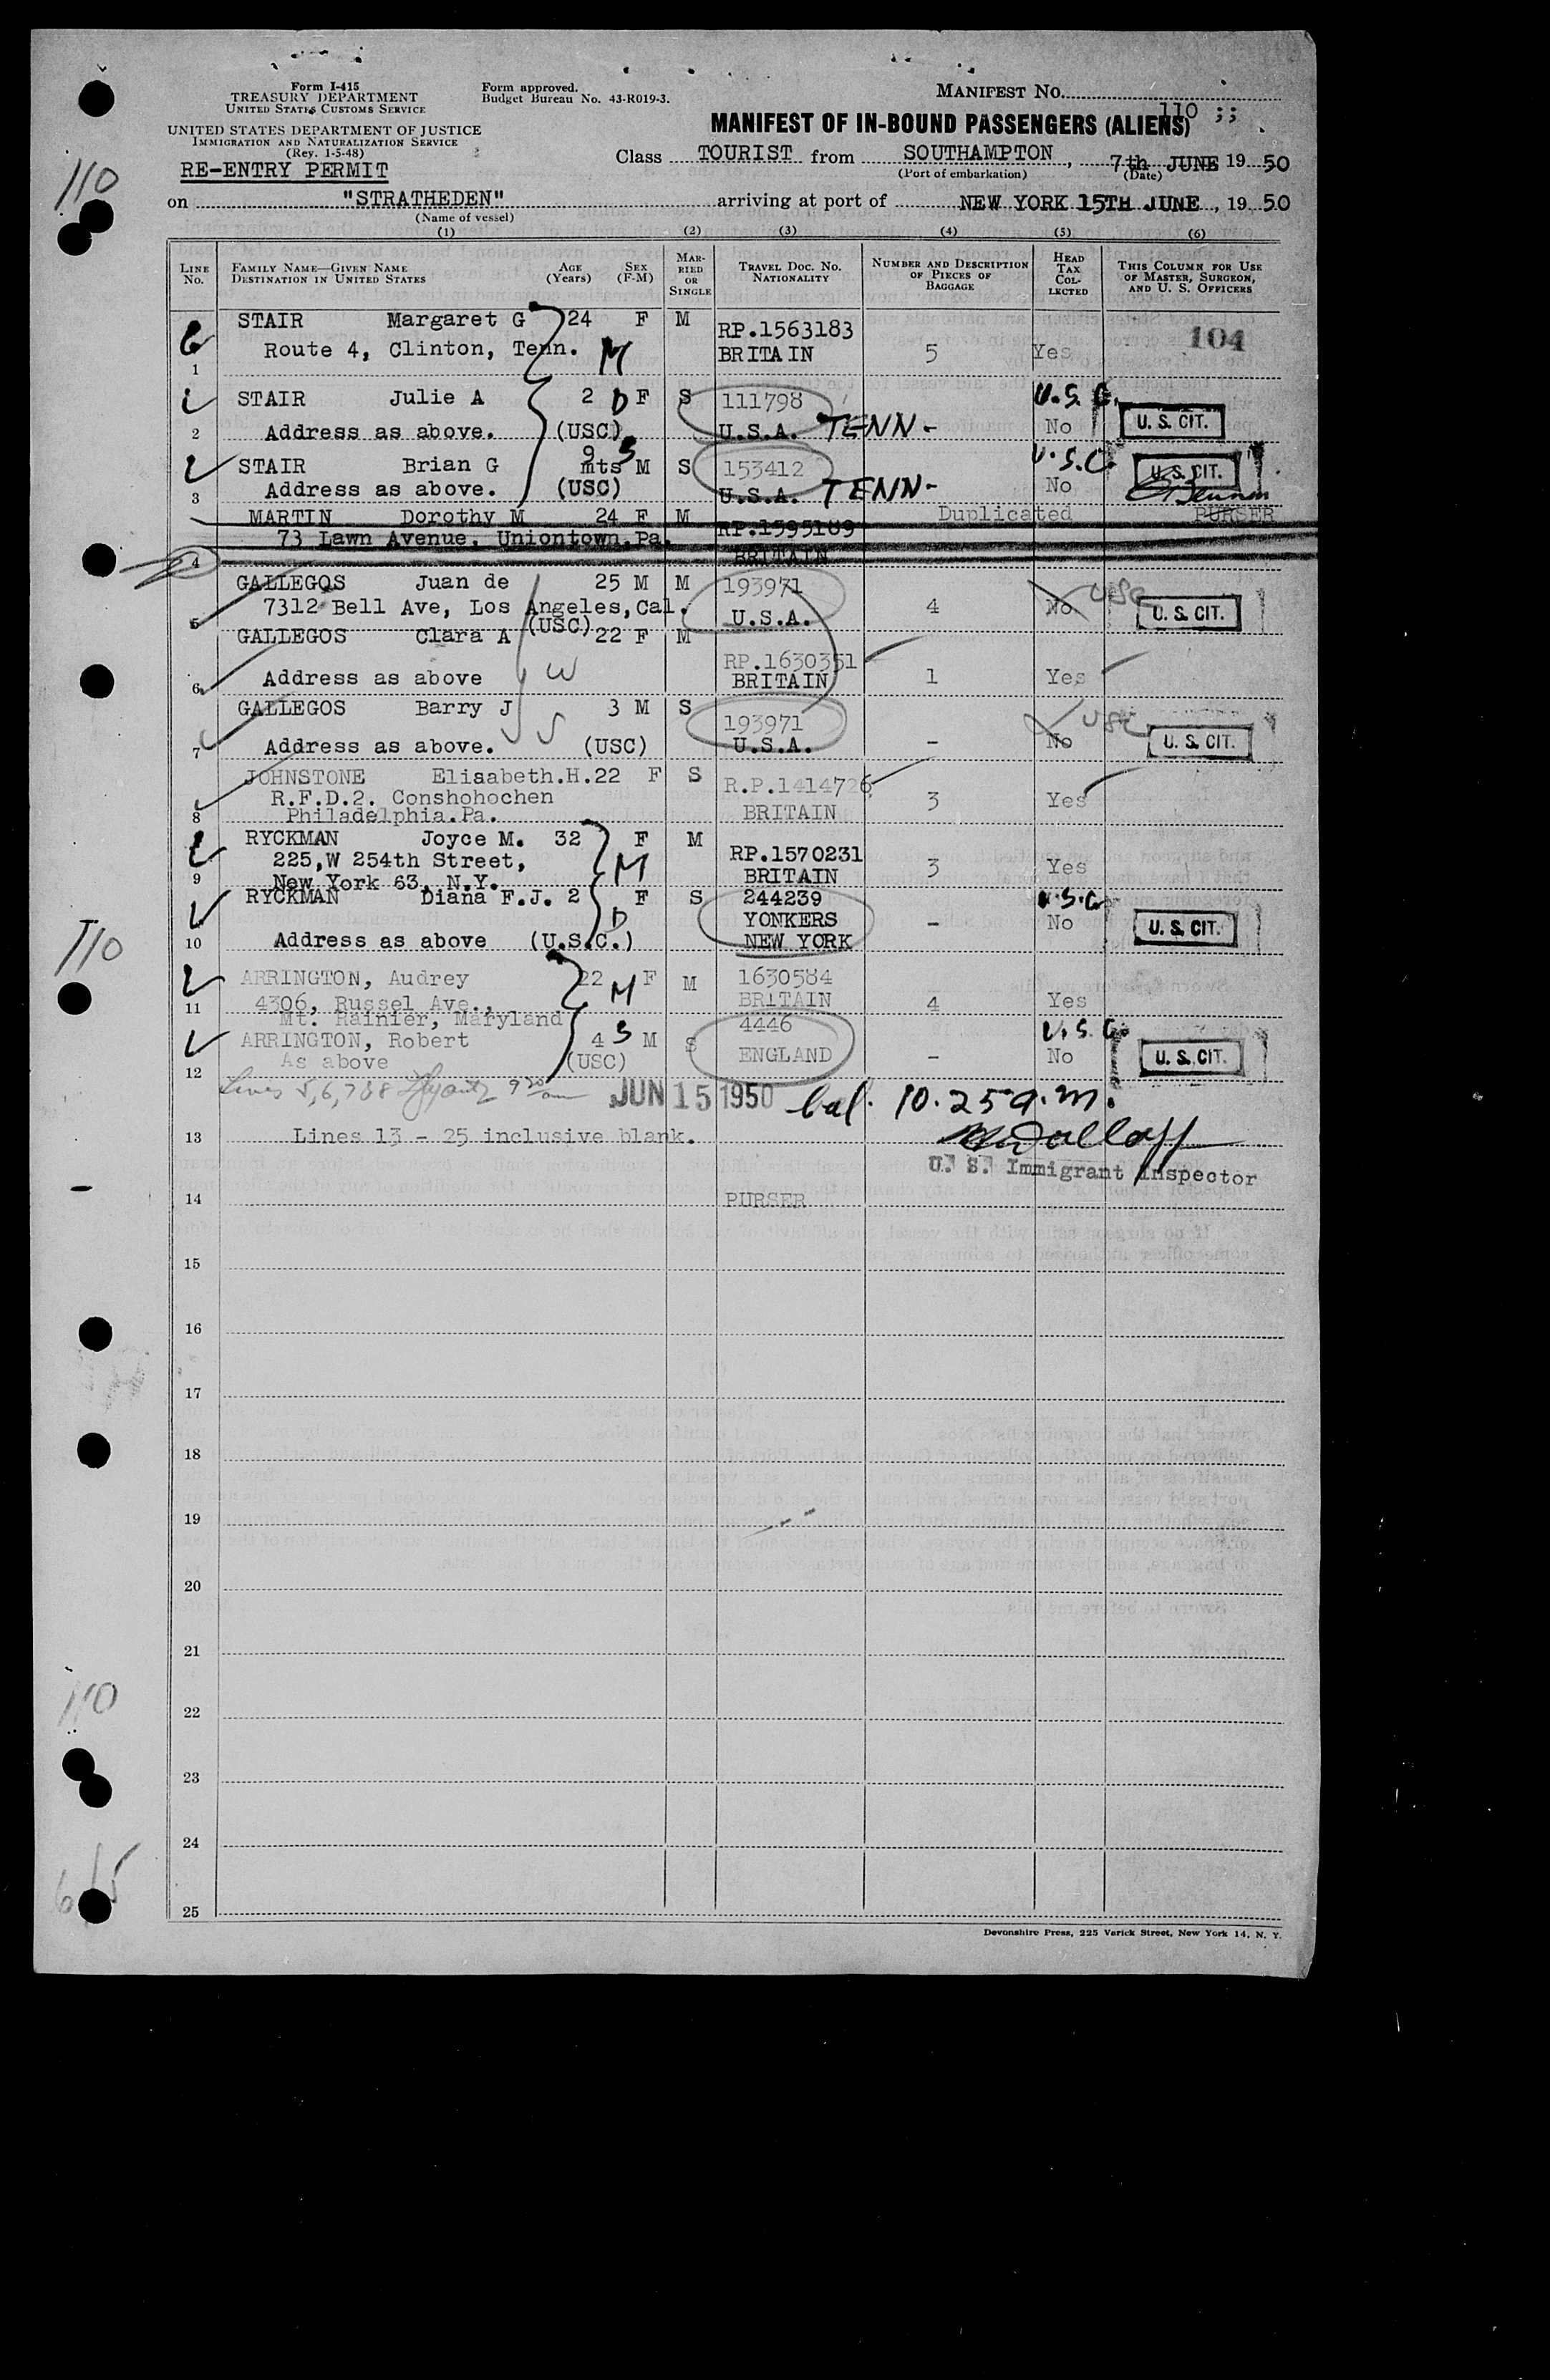 Form I-415
TREASURY DEPARTMENT
UNITED STATES CUSTOMS SERVICE
Form approved.
Budget Bureau No. 43-R019-3.
MANIFEST No.
110 ;;
UNITED STATES DEPARTMENT OF JUSTICE
IMMIGRATION AND NATURALIZATION SERVICE
(Rev. 1-5-48)
MANIFEST OF IN-BOUND PASSENGERS (ALIENS)
110
RE-ENTRY PERMIT
Class TOURIST from SOUTHAMPTON, 7th JUNE 19 50
(Port of embarkation) (Date)
on "STRATHEDEN" arriving at port of NEW YORK 15TH JUNE, 19 50
(Name of vessel)
(1) (2) (3) (4) (5) (6)
LINE No. FAMILY NAME—GIVEN NAME DESTINATION IN UNITED STATES AGE (Years) SEX (F-M) MARRIED OR SINGLE TRAVEL DOC. NO. NATIONALITY NUMBER AND DESCRIPTION OF PIECES OF BAGGAGE HEAD TAX COLLECTED THIS COLUMN FOR USE OF MASTER, SURGEON, AND U. S. OFFICERS
STAIR Margaret G 24 F M RP.1563183 104
1 Route 4, Clinton, Tenn. M BRITAIN 5 Yes
STAIR Julie A 2 D F S 111798 U.S.C.
2 Address as above. (USC) U.S.A. TENN- No U. S. CIT.
STAIR Brian G 9 mts S M S 153412 U.S.C. U. S. CIT.
3 Address as above. (USC) U.S.A. TENN- No
MARTIN Dorothy M 24 F M RP.1595189 Duplicated PURSER
4 73 Lawn Avenue, Uniontown.Pa. BRITAIN
GALLEGOS Juan de 25 M M 193971 USC
5 7312 Bell Ave, Los Angeles,Cal. (USC) U.S.A. 4 No U. S. CIT.
GALLEGOS Clara A 22 F M RP.1630351
6 Address as above W BRITAIN 1 Yes
GALLEGOS Barry J 3 M S 193971 USC
7 Address as above. S (USC) U.S.A. - No U. S. CIT.
JOHNSTONE Elisabeth.H.22 F S R.P.1414726
R.F.D.2. Conshohochen 3 Yes
8 Philadelphia.Pa. BRITAIN
RYCKMAN Joyce M. 32 F M RP.1570231
225,W 254th Street, M BRITAIN 3 Yes
9 New York 63, N.Y.
RYCKMAN Diana F.J. 2 D F S 244239 U.S.C.
YONKERS - No U. S. CIT.
10 Address as above (U.S.C.) NEW YORK
110
ARRINGTON, Audrey 22 M F M 1630584
11 4306, Russel Ave., BRITAIN 4 Yes
Mt. Rainier, Maryland
ARRINGTON, Robert 4 S M S 4446 U.S.C.
12 As above (USC) ENGLAND - No U. S. CIT.
Lines 5,6,7&8 JUN 15 1950 bal. 10.25 a.m.
13 Lines 13 - 25 inclusive blank.
U. S. Immigrant Inspector
14 PURSER
15
16
17
18
19
20
21
22
110
23
24
25
Devonshire Press, 225 Varick Street, New York 14, N. Y.